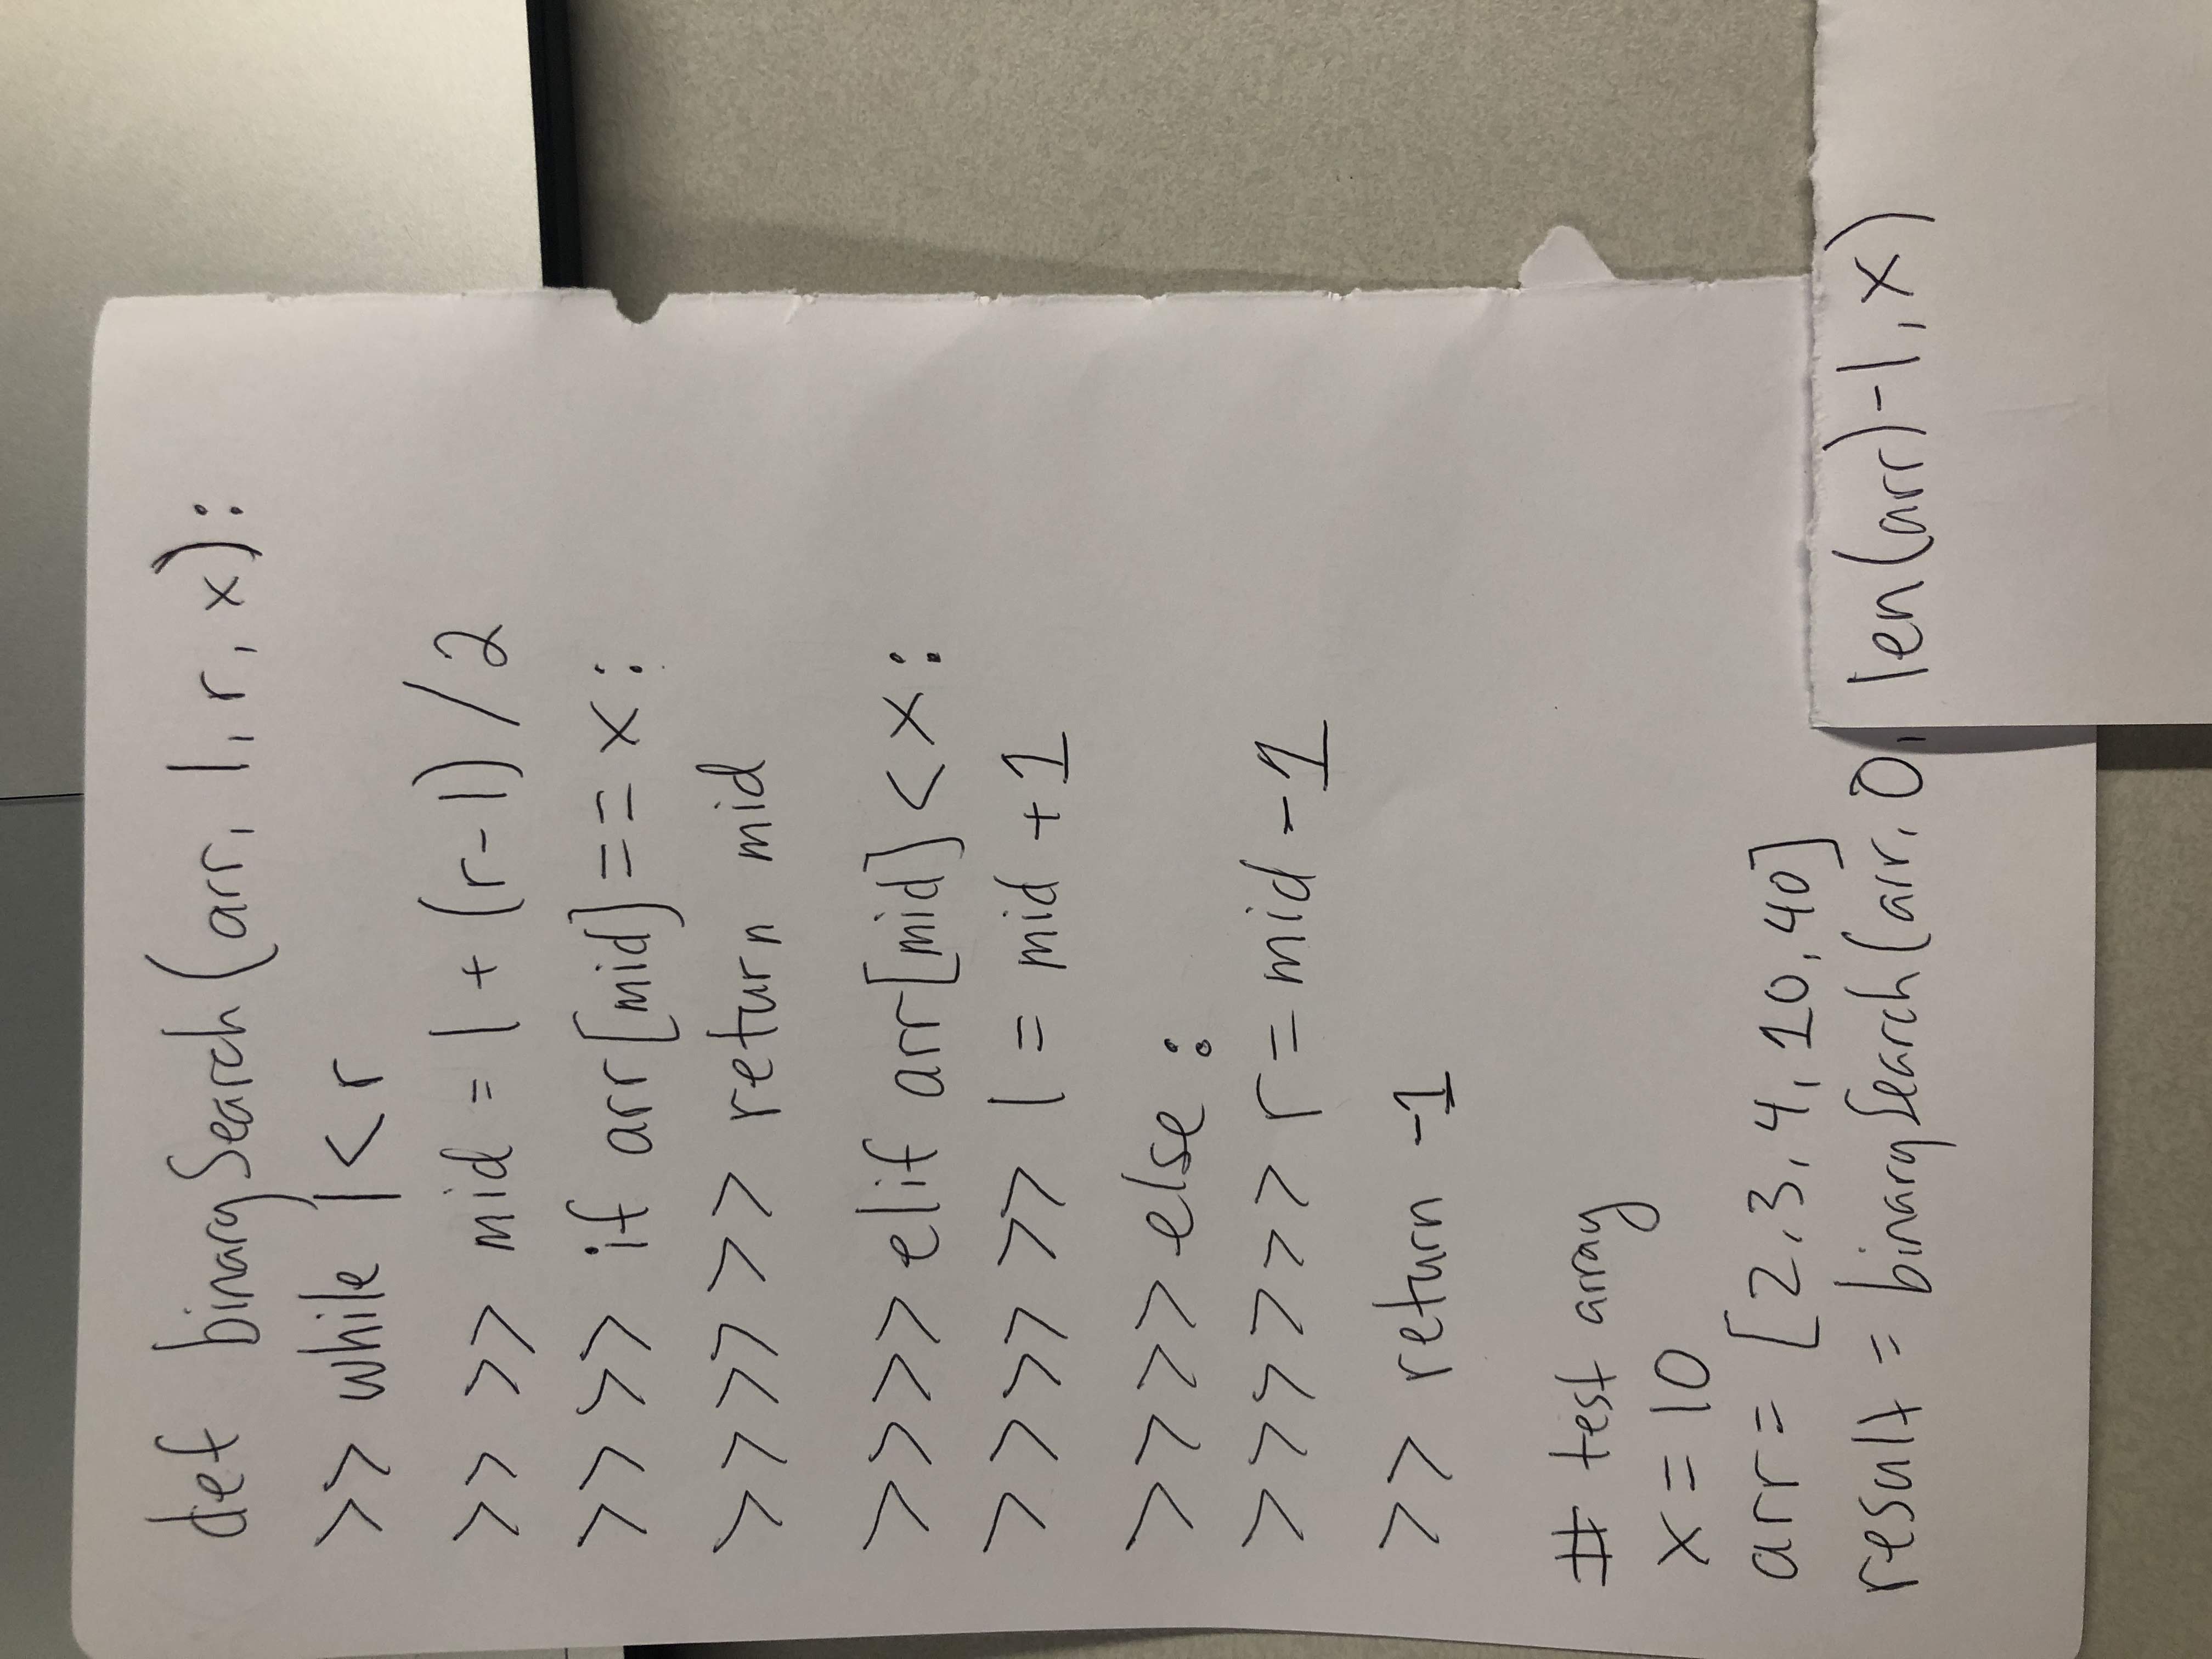 def binarySearch(arr, l, r, x):
>> while l < r
>> >> mid = l + (r-l) / 2
>>>> if arr[mid] == x:
>>>>>> return mid
>>>> elif arr[mid] < x:
>>>>>> l = mid + 1
>>>> else:
>>>>>> r = mid - 1
>> return -1
# test array
x = 10
arr = [2, 3, 4, 10, 40]
result = binarySearch(arr, 0, len(arr)-1, x)